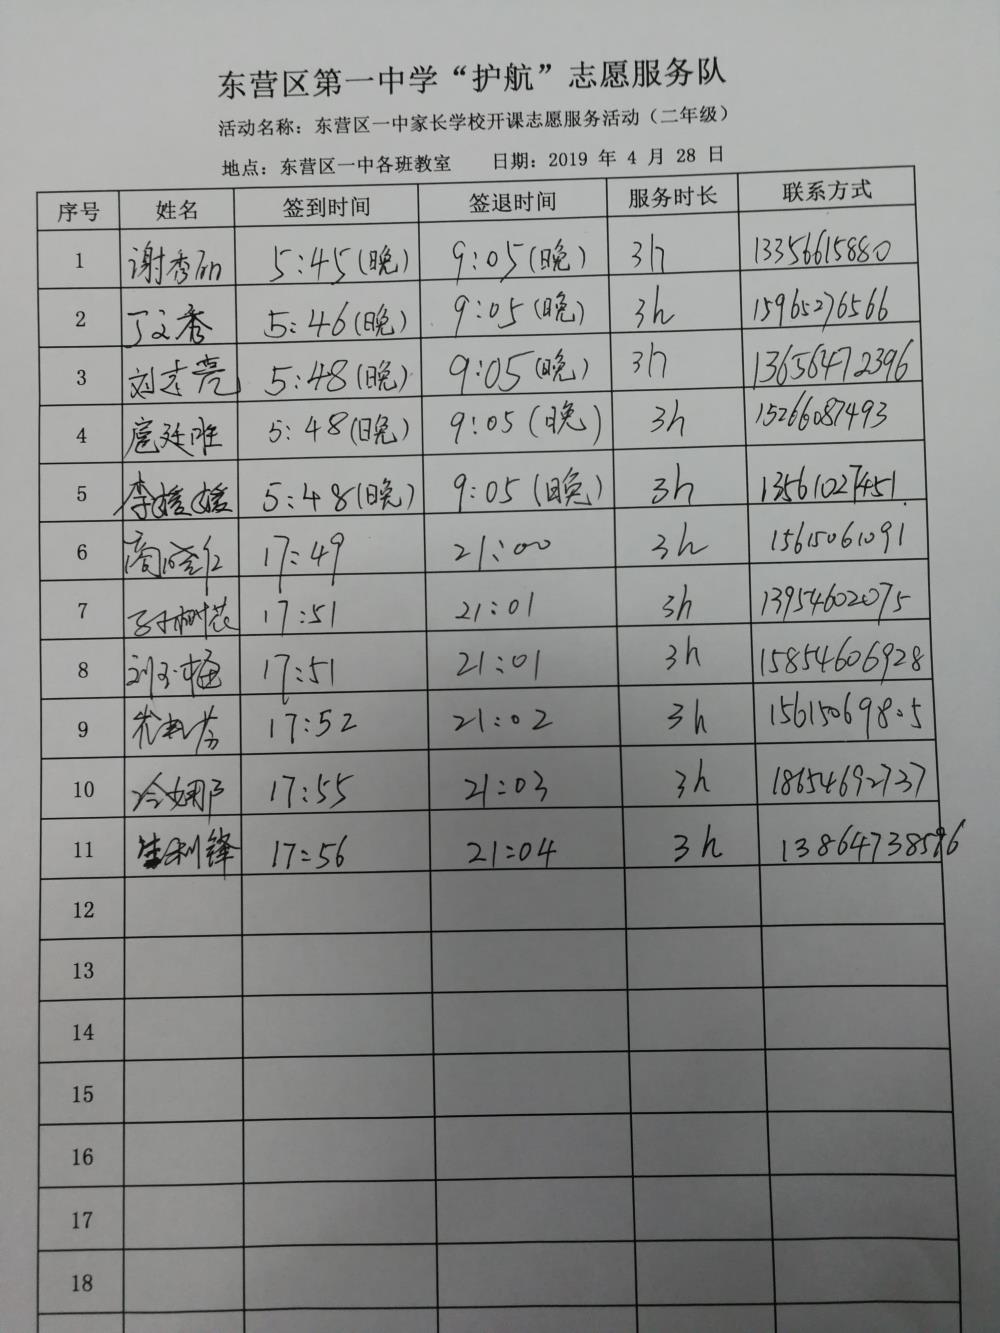 东营区第一中学“护航”志愿服务队
活动名称：东营区一中家长学校开课志愿服务活动（二年级）
地点：东营区一中各班教室 日期：2019 年 4 月 28 日
序号 姓名 签到时间 签退时间 服务时长 联系方式
1 谢秀丽 5:45(晚) 9:05(晚) 3h 13356615880
2 丁文秀 5:46(晚) 9:05(晚) 3h 15965276566
3 刘志亮 5:48(晚) 9:05(晚) 3h 13656472396
4 扈廷胜 5:48(晚) 9:05(晚) 3h 15266087493
5 李媛媛 5:48(晚) 9:05(晚) 3h 13561027451
6 17:49 21:00 3h 15615061091
7 孙树花 17:51 21:01 3h 13954602075
8 刘玉梅 17:51 21:01 3h 15854606928
9 17:52 21:02 3h 15615069805
10 冷娜 17:55 21:03 3h 18654692737
11 生利锋 17:56 21:04 3h 13864738596
12
13
14
15
16
17
18